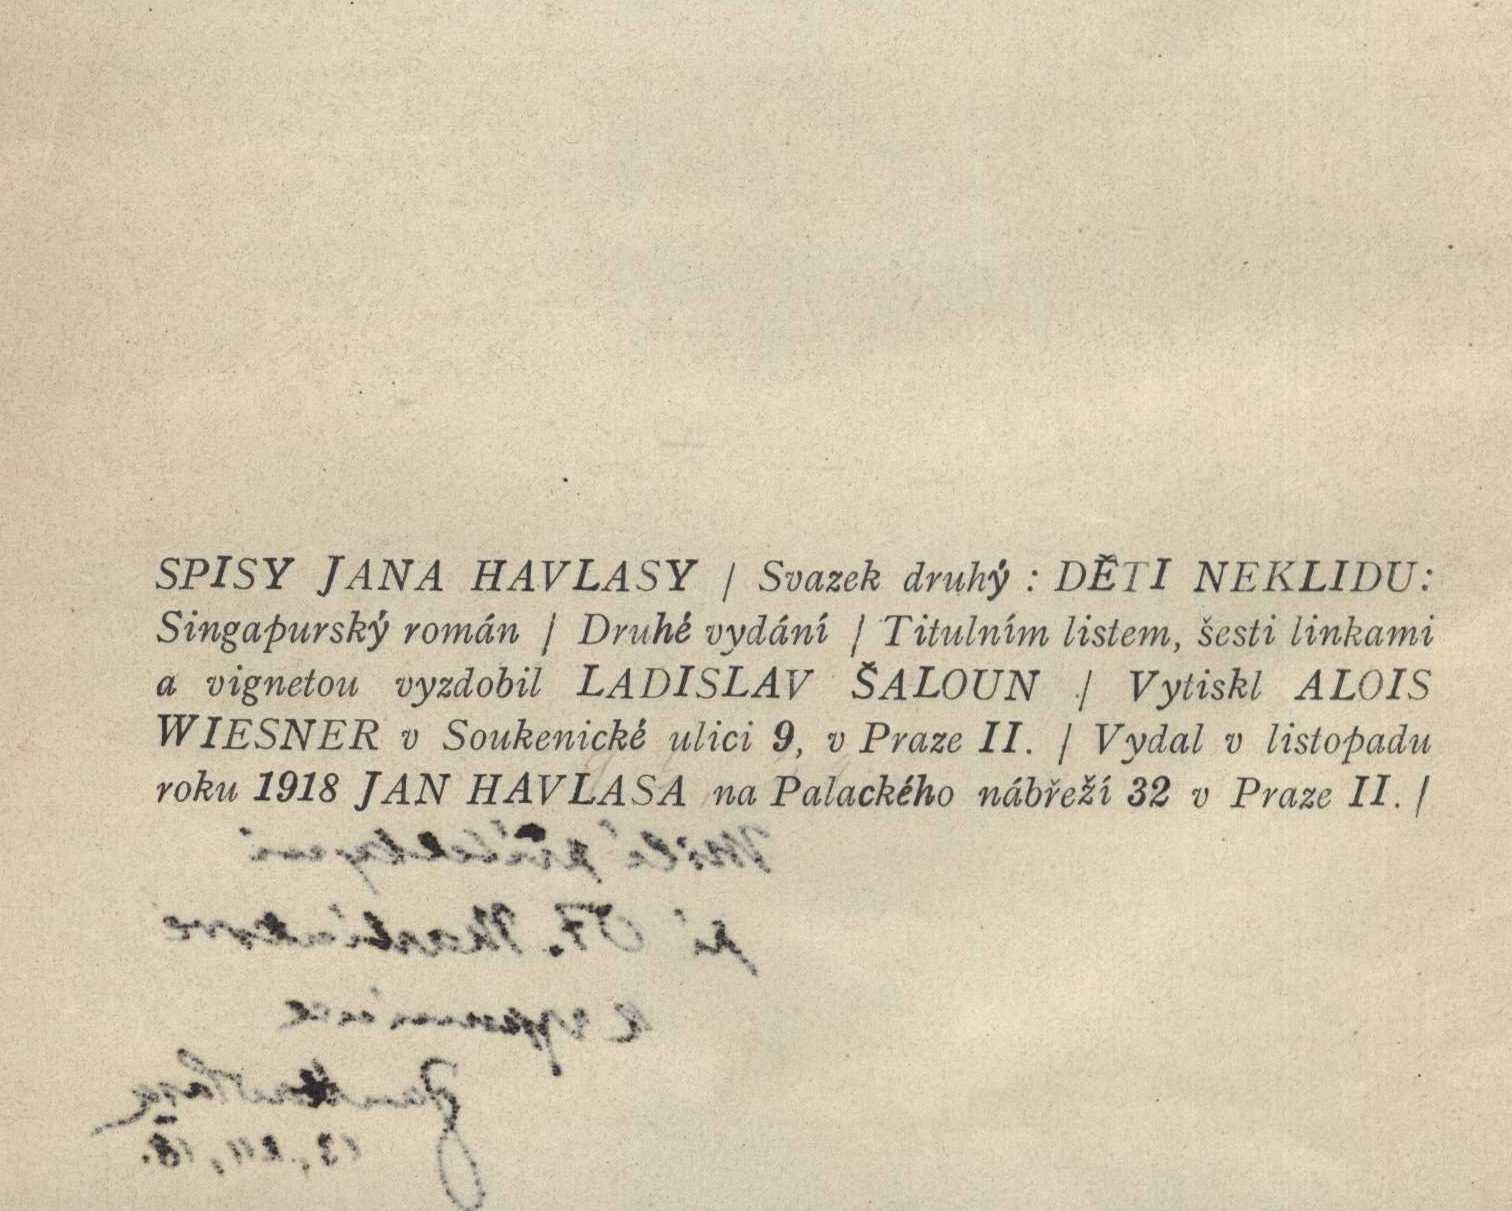 SPISY JANA HAVLASY / Svazek druhý : DĚTI NEKLIDU:
Singapurský román / Druhé vydání / Titulním listem, šesti linkami
a vignetou vyzdobil LADISLAV ŠALOUN / Vytiskl ALOIS
WIESNER v Soukenické ulici 9, v Praze II. / Vydal v listopadu
roku 1918 JAN HAVLASA na Palackého nábřeží 32 v Praze II. /
Milé přítelkyni
Jan Havlasa